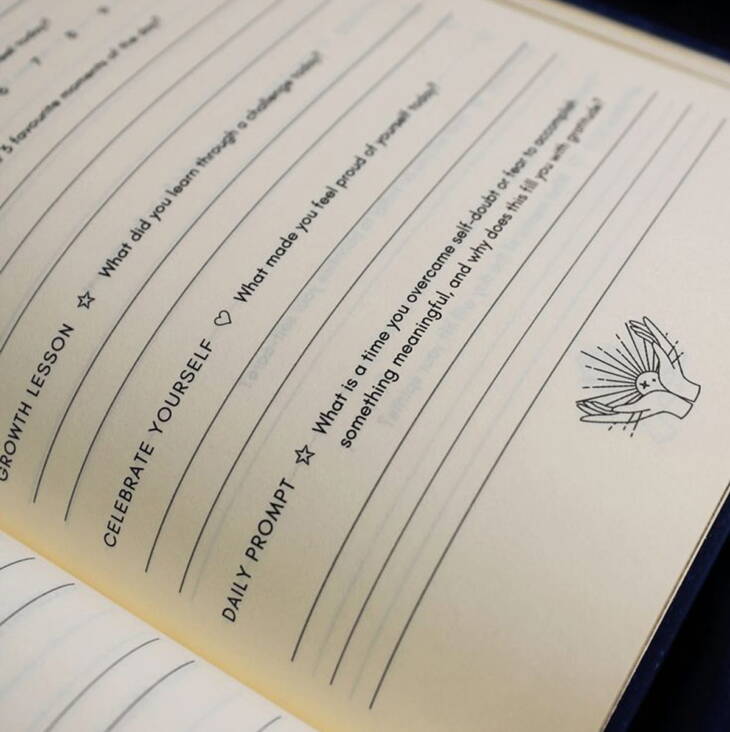 today?
6 7 8 9
3 favourite moments of the day?
GROWTH LESSON ☆ What did you learn through a challenge today?
CELEBRATE YOURSELF ♡ What made you feel proud of yourself today?
DAILY PROMPT ☆ What is a time you overcame self-doubt or fear to accomplish
something meaningful, and why does this fill you with gratitude?